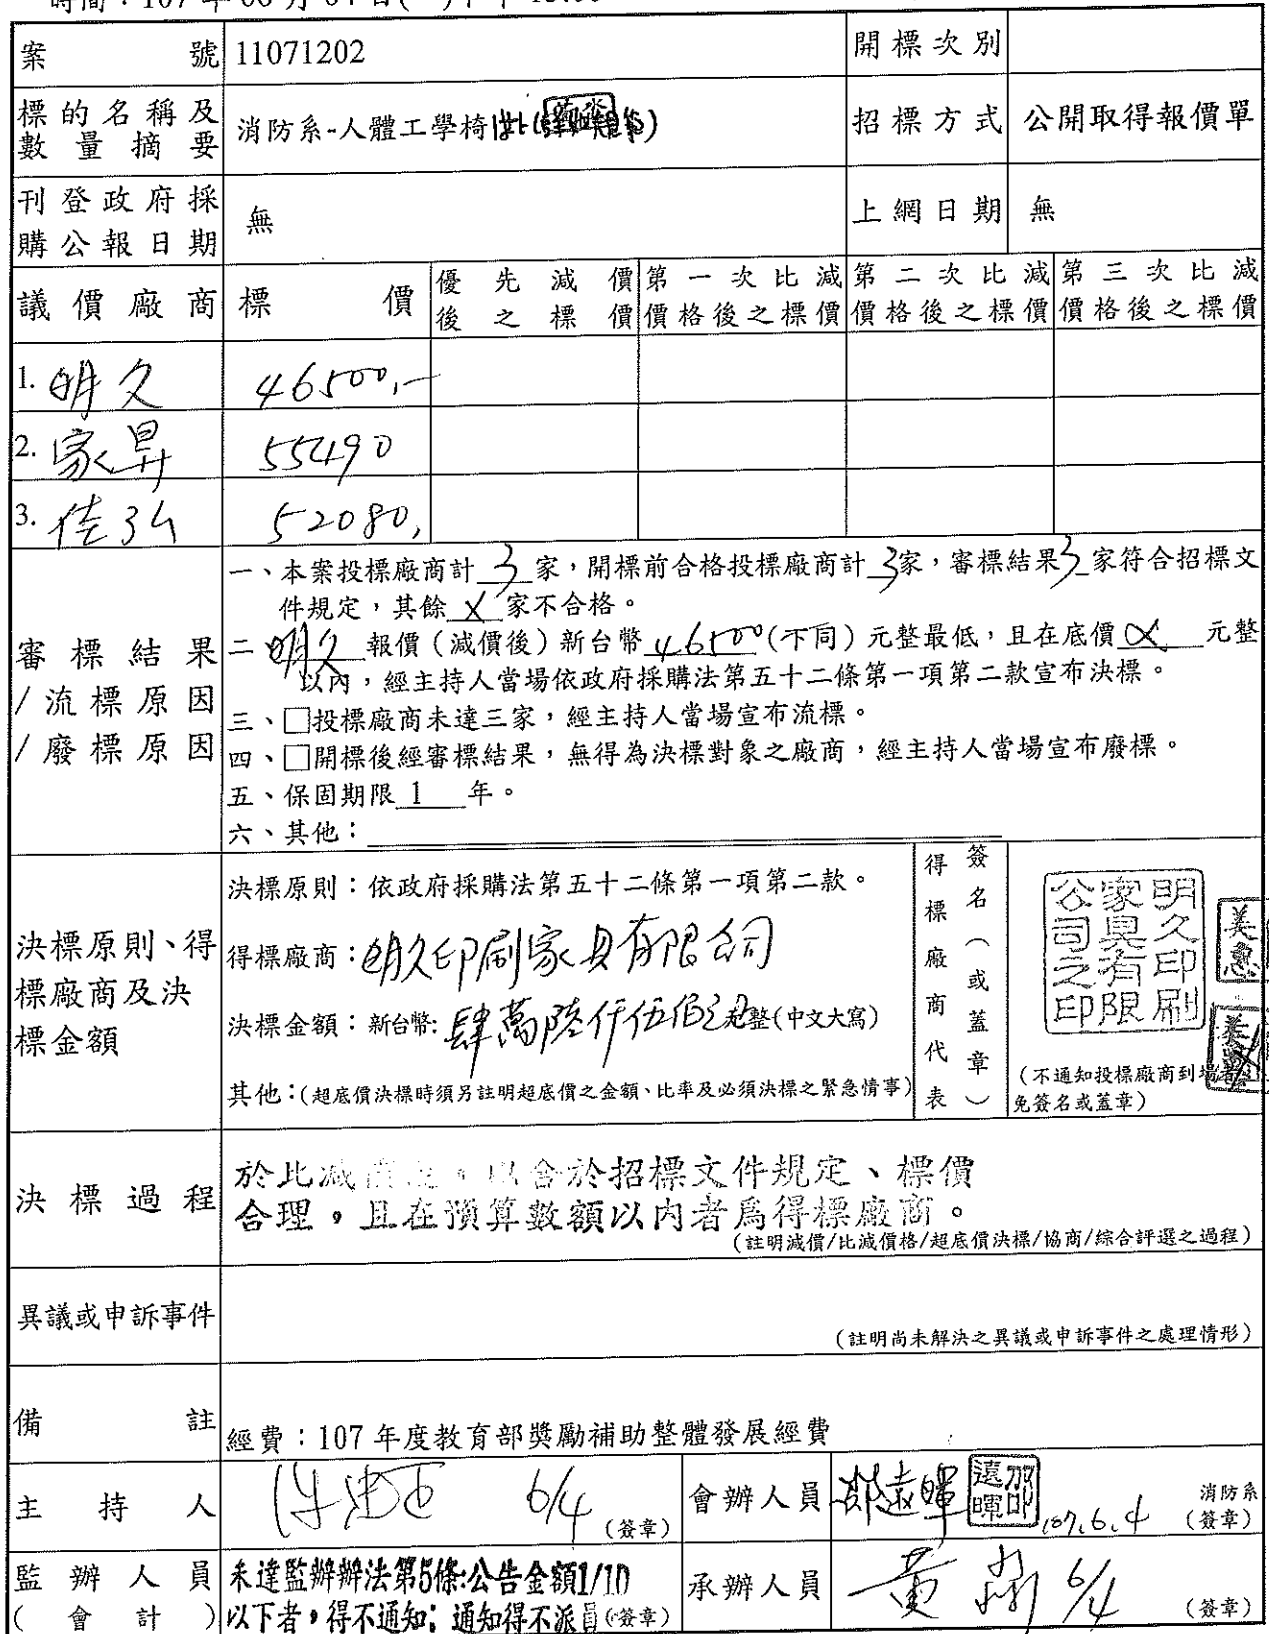 時間：107 年 06 月 04 日
案號 11071202 開標次別
標的名稱及數量摘要 消防系-人體工學椅 招標方式 公開取得報價單
刊登政府採購公報日期 無 上網日期 無
議價廠商 標價 優先減價後之標價 第一次比減價格後之標價 第二次比減價格後之標價 第三次比減價格後之標價
1. 明久 46500,-
2. 家昇 55490
3. 佳弘 52080,
審標結果/流標原因/廢標原因
一、本案投標廠商計 3 家，開標前合格投標廠商計 3 家，審標結果 3 家符合招標文
件規定，其餘 X 家不合格。
二、明久 報價（減價後）新台幣 46500（不同）元整最低，且在底價 X 元整
以內，經主持人當場依政府採購法第五十二條第一項第二款宣布決標。
三、□投標廠商未達三家，經主持人當場宣布流標。
四、□開標後經審標結果，無得為決標對象之廠商，經主持人當場宣布廢標。
五、保固期限 1 年。
六、其他：
決標原則、得標廠商及決標金額
決標原則：依政府採購法第五十二條第一項第二款。
得標廠商：明久印刷家具有限公司
決標金額：新台幣: 肆萬陸仟伍佰元整(中文大寫)
其他：(超底價決標時須另註明超底價之金額、比率及必須決標之緊急情事)
得標廠商代表 簽名（或蓋章）
明久印刷家具有限公司之印
(不通知投標廠商到場者
免簽名或蓋章)
決標過程
於比減 合於招標文件規定、標價
合理，且在預算數額以內者為得標廠商。
(註明減價/比減價格/超底價決標/協商/綜合評選之過程)
異議或申訴事件
(註明尚未解決之異議或申訴事件之處理情形)
備註 經費：107 年度教育部獎勵補助整體發展經費
主持人 6/4 (簽章) 會辦人員 邵遠暉 邵遠暉印 107.6.4 消防系(簽章)
監辦人員(會計) 未達監辦辦法第5條:公告金額1/10
以下者，得不通知；通知得不派員(簽章)
承辦人員 黃 6/4 (簽章)